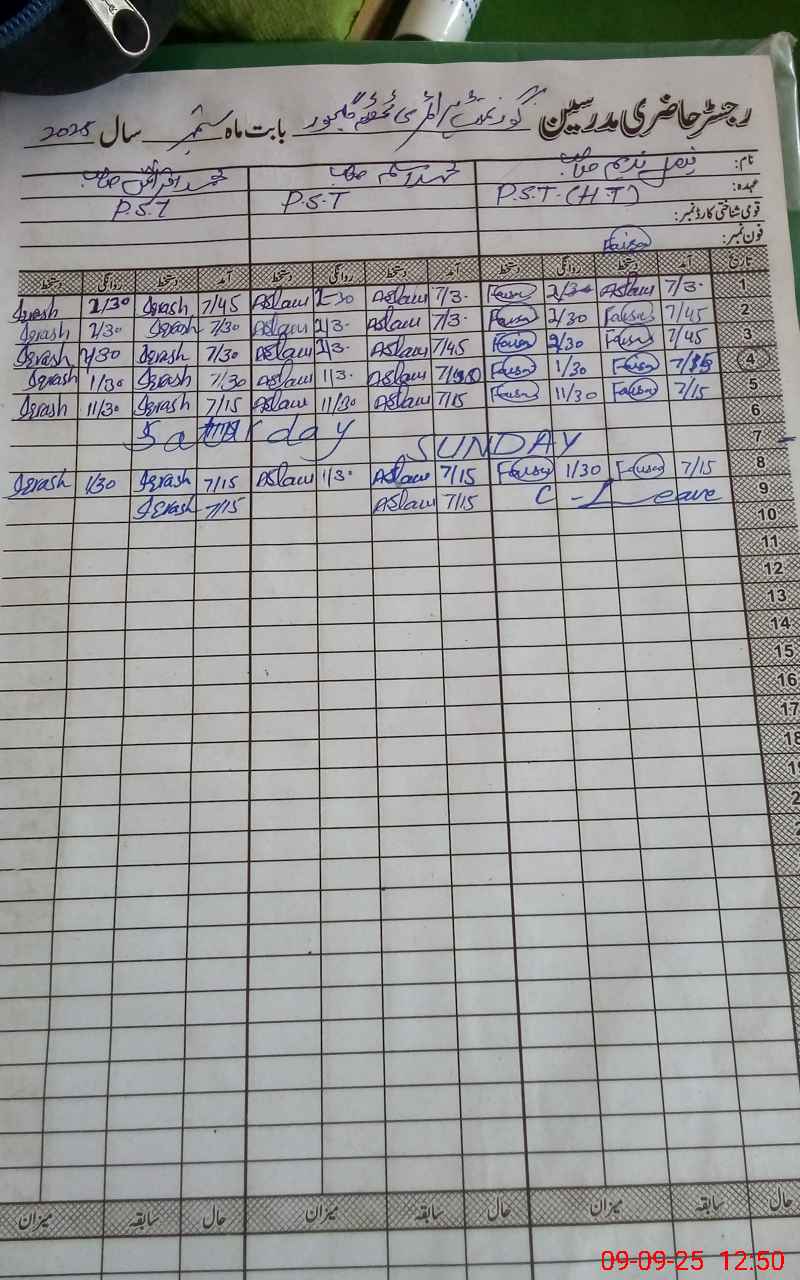 رجسٹر حاضری مدرسین گورنمنٹ بابت ماہ ستمبر سال 2025
نام: فیصل ندیم صاحب محمد اسلم صاحب محمد اقراش صاحب
عہدہ: P.S.T. (H.T) P.S.T P.S.T
قومی شناختی کارڈ نمبر:
فون نمبر: Faisal
تاریخ آمد دستخط روانگی دستخط آمد دستخط روانگی دستخط آمد دستخط روانگی دستخط
1 7/3. Aslam 2/30 Faisal 7/3. Aslam 2-30 Aslam 7/45 Iqrash 2/30 Iqrash
2 7/45 Faisal 2/30 Faisal 7/3. Aslam 2/3. Aslam 7/30 Iqrash 2/30 Iqrash
3 7/45 Faisal 2/30 Faisal 7/45 Aslam 2/3. Aslam 7/30 Iqrash 2/30 Iqrash
4 Faisal 1/30 Faisal Aslam 1/3. Aslam 7/30 Iqrash 1/30 Iqrash
5 7/15 Faisal 11/30 Faisal 7/15 Aslam 11/30 Aslam 7/15 Iqrash 11/30 Iqrash
6 Saturday
7 SUNDAY
8 7/15 Faisal 1/30 Faisal 7/15 Aslam 1/3. Aslam 7/15 Iqrash 1/30 Iqrash
9 C - Leave 7/15 Aslam 7/15 Iqrash
10
11
12
13
14
15
16
17
18
حال سابقہ میزان حال سابقہ میزان حال سابقہ میزان
09-09-25 12:50